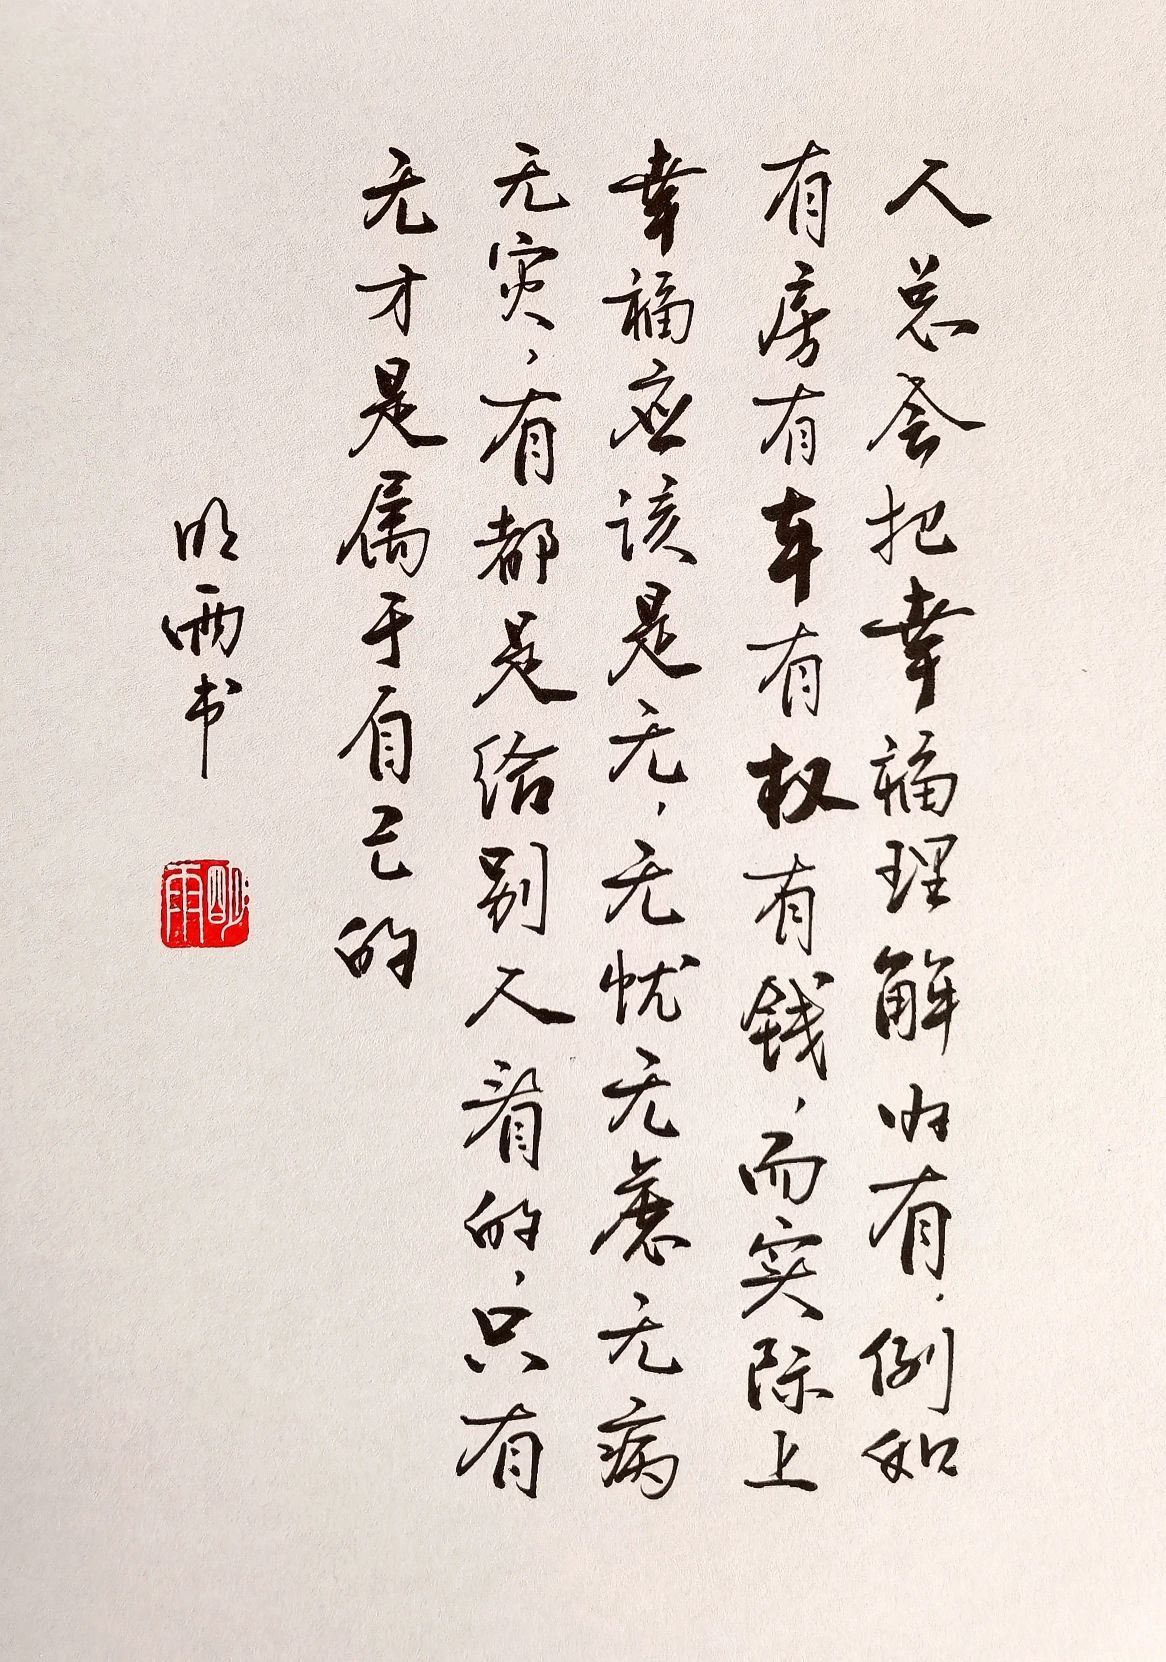 人总会把幸福理解为有，例如
有房有车有权有钱，而实际上
幸福应该是无，无忧无虑无病
无灾，有都是给别人看的，只有
无才是属于自己的
明雨书
明雨